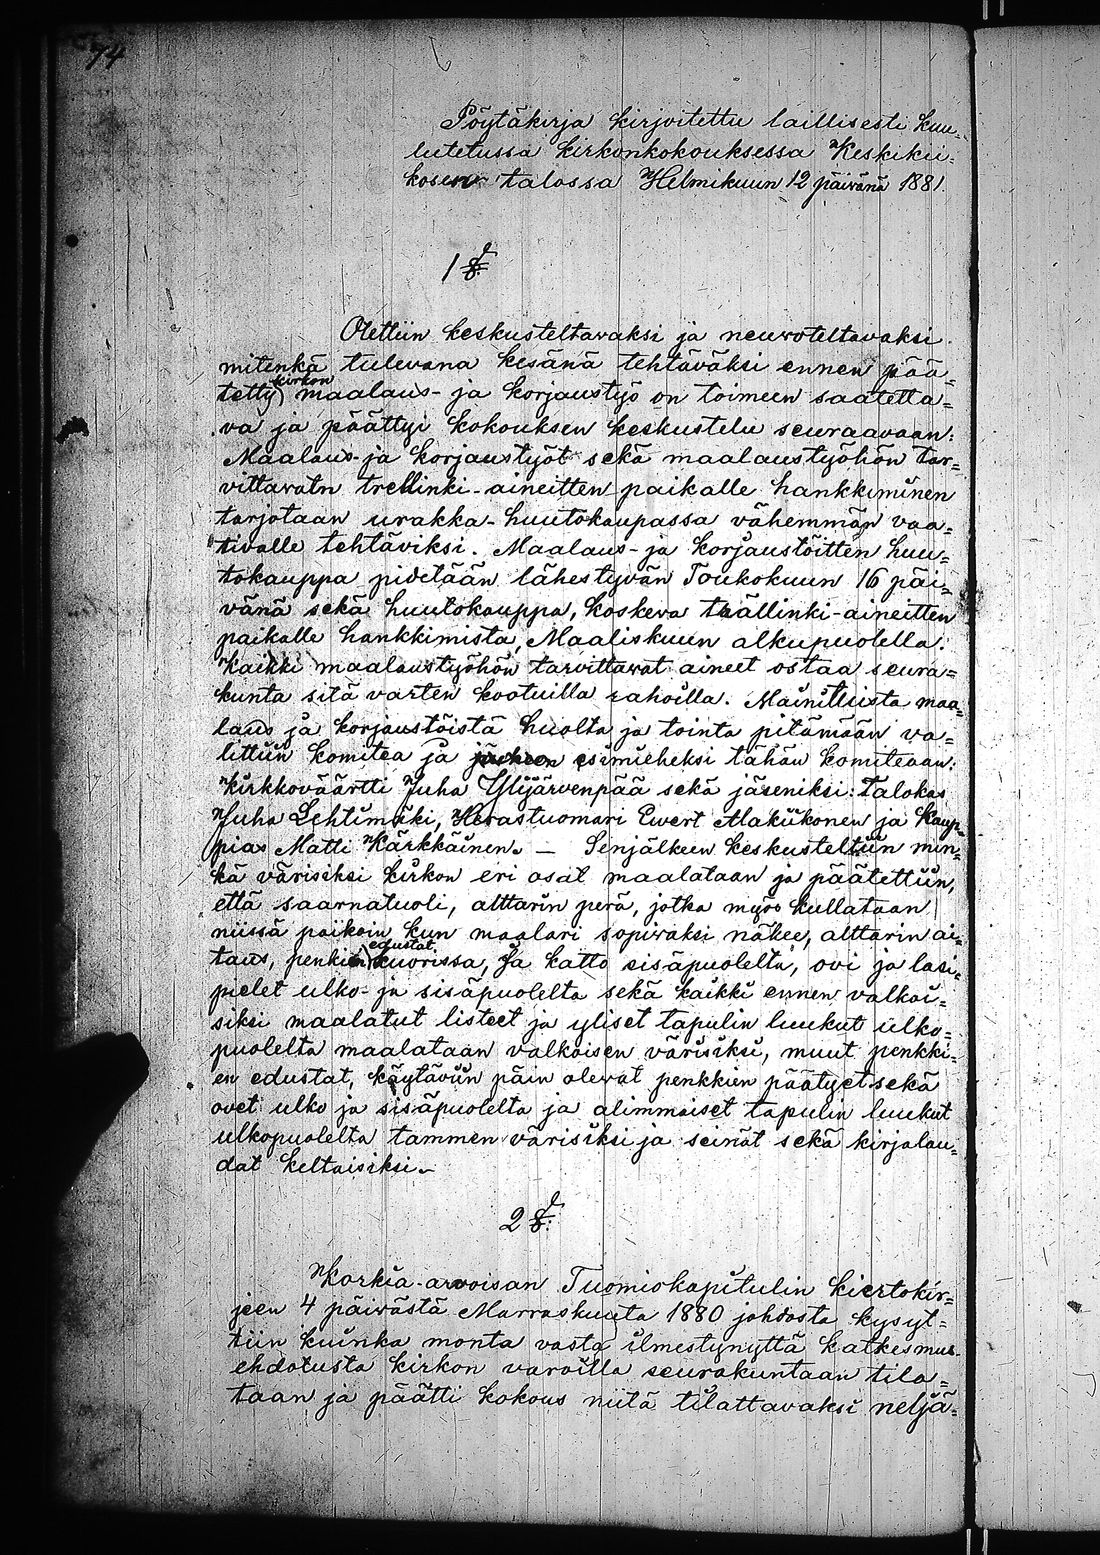 74
Pöytäkirja kirjoitettu laillisesti kuu=
lutetussa kirkonkokouksessa Keskikii=
kosen talossa Helmikuun 12 päivänä 1881.
1 §.
Otettiin keskusteltavaksi ja neuvoteltavaksi
mitenkä tulevana kesänä tehtäväksi ennen pää=
kirkon
tetty maalaus- ja korjaustyö on toimeen saatetta=
va ja päättyi kokouksen keskustelu seuraavaan:
Maalaus- ja korjaustyöt sekä maalaustyöhön tar=
vittavatn trellinki-aineitten paikalle hankkiminen
tarjotaan urakka-huutokaupassa vähemmän vaa=
tivalle tehtäviksi. Maalaus- ja korjaustöitten huu=
tokauppa pidetään lähestyvän Toukokuun 16 päi=
vänä sekä huutokauppa, koskeva trällinki-aineitten
paikalle hankkimista, Maaliskuun alkupuolella.
Kaikki maalaustyöhön tarvittavat aineet ostaa seura=
kunta sitä varten kootuilla rahoilla. Mainituista maa=
laus ja korjaustöistä huolta ja tointa pitämään va=
littiin komitea ja esimieheksi tähän komiteaan:
Kirkkoväärtti Juha Ylijärvenpää sekä jäseniksi: Talokas
Juha Lehtimäki, Herastuomari Ewert Alakiikonen ja Kaup=
pias Matti Kärkkäinen. — Senjälkeen keskusteltiin min=
kä värisiksi kirkon eri osat maalataan ja päätettiin,
että saarnatuoli, alttarin perä, jotka myös kullataan
niissä paikoin kun maalari sopivaksi näkee, alttarin ai=
edustat
taus, penkien kuorissa, ja katto sisäpuolelta, ovi ja lasi=
pielet ulko- ja sisäpuolelta sekä kaikki ennen valkoi=
siksi maalatut listeet ja yliset tapulin luukut ulko=
puolelta maalataan valkoisen värisiksi, muut penkki=
en edustat, käytäviin päin olevat penkkien päätyet sekä
ovet ulko ja sisäpuolelta ja alimmaiset tapulin luukut
ulkopuolelta tammen värisiksi ja seinät sekä kirjalau=
dat keltaisiksi.
2 §.
Korkia-arvoisan Tuomiokapitulin kiertokir=
jeen 4 päivästä Marraskuuta 1880 johdosta kysyt=
tiin kuinka monta vasta ilmestynyttä katkesmus-
ehdotusta kirkon varoilla seurakuntaan tila=
taan ja päätti kokous niitä tilattavaksi neljä=